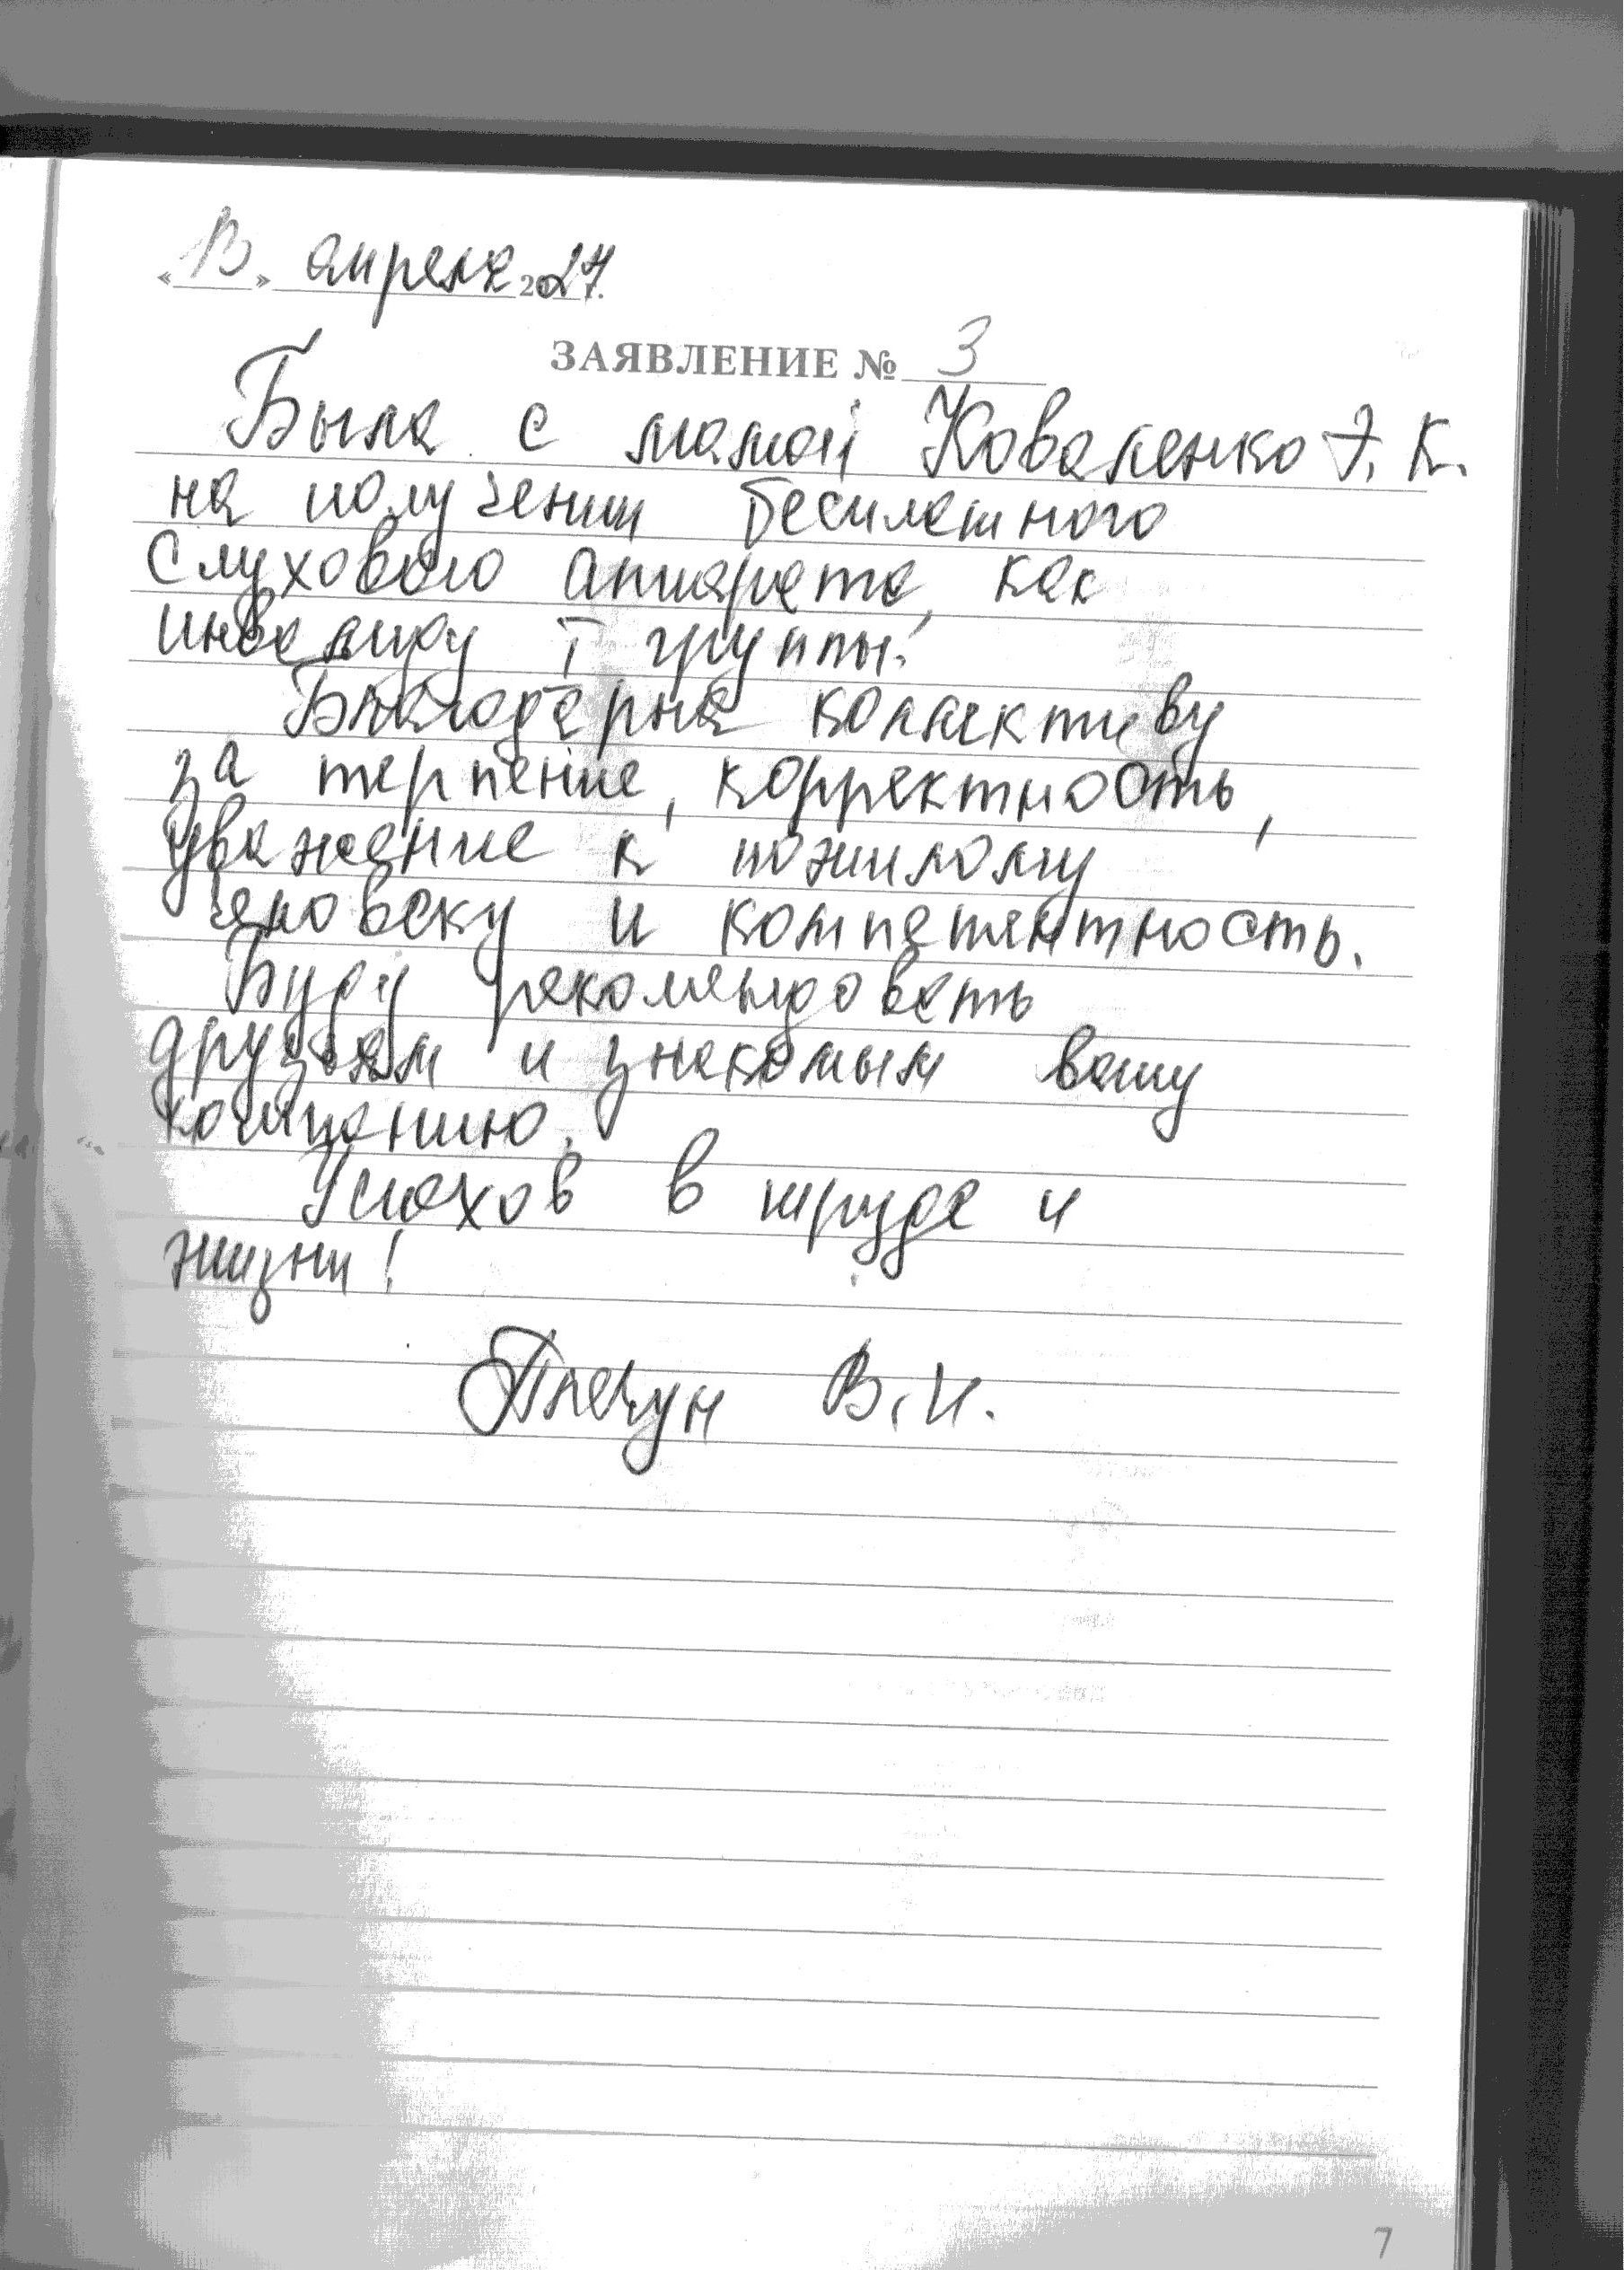 «13» апреля 2027.
ЗАЯВЛЕНИЕ № 3
Была с мамой Коваленко Э. К.
на получении бесплатного
слухового аппарата, как
инвалиду I группы.
Благодарна коллективу
за терпение, корректность,
уважение к пожилому
человеку и компетентность.
Буду рекомендовать
друзьям и знакомым вашу
компанию.
Успехов в труде и
жизни!
В. И.
7